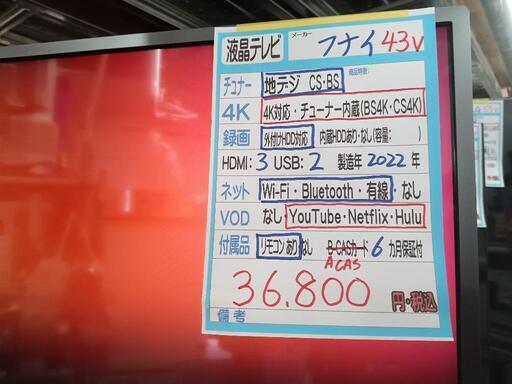 液晶テレビ メーカー フナイ 43V
商品特徴:
チュナー 地デジ CS・BS
4K 4K対応・チューナー内蔵(BS4K・CS4K)
録画 外付けHDD対応 内蔵HDDあり・なし(容量: )
HDMI: 3 USB: 2 製造年 2022 年
ネット Wi-Fi・Bluetooth・有線・なし
VOD なし・YouTube・Netflix・Hulu
付属品 リモコン あり なし B-CASカード 6 カ月保証付
ACAS
36.800 円・税込
備考